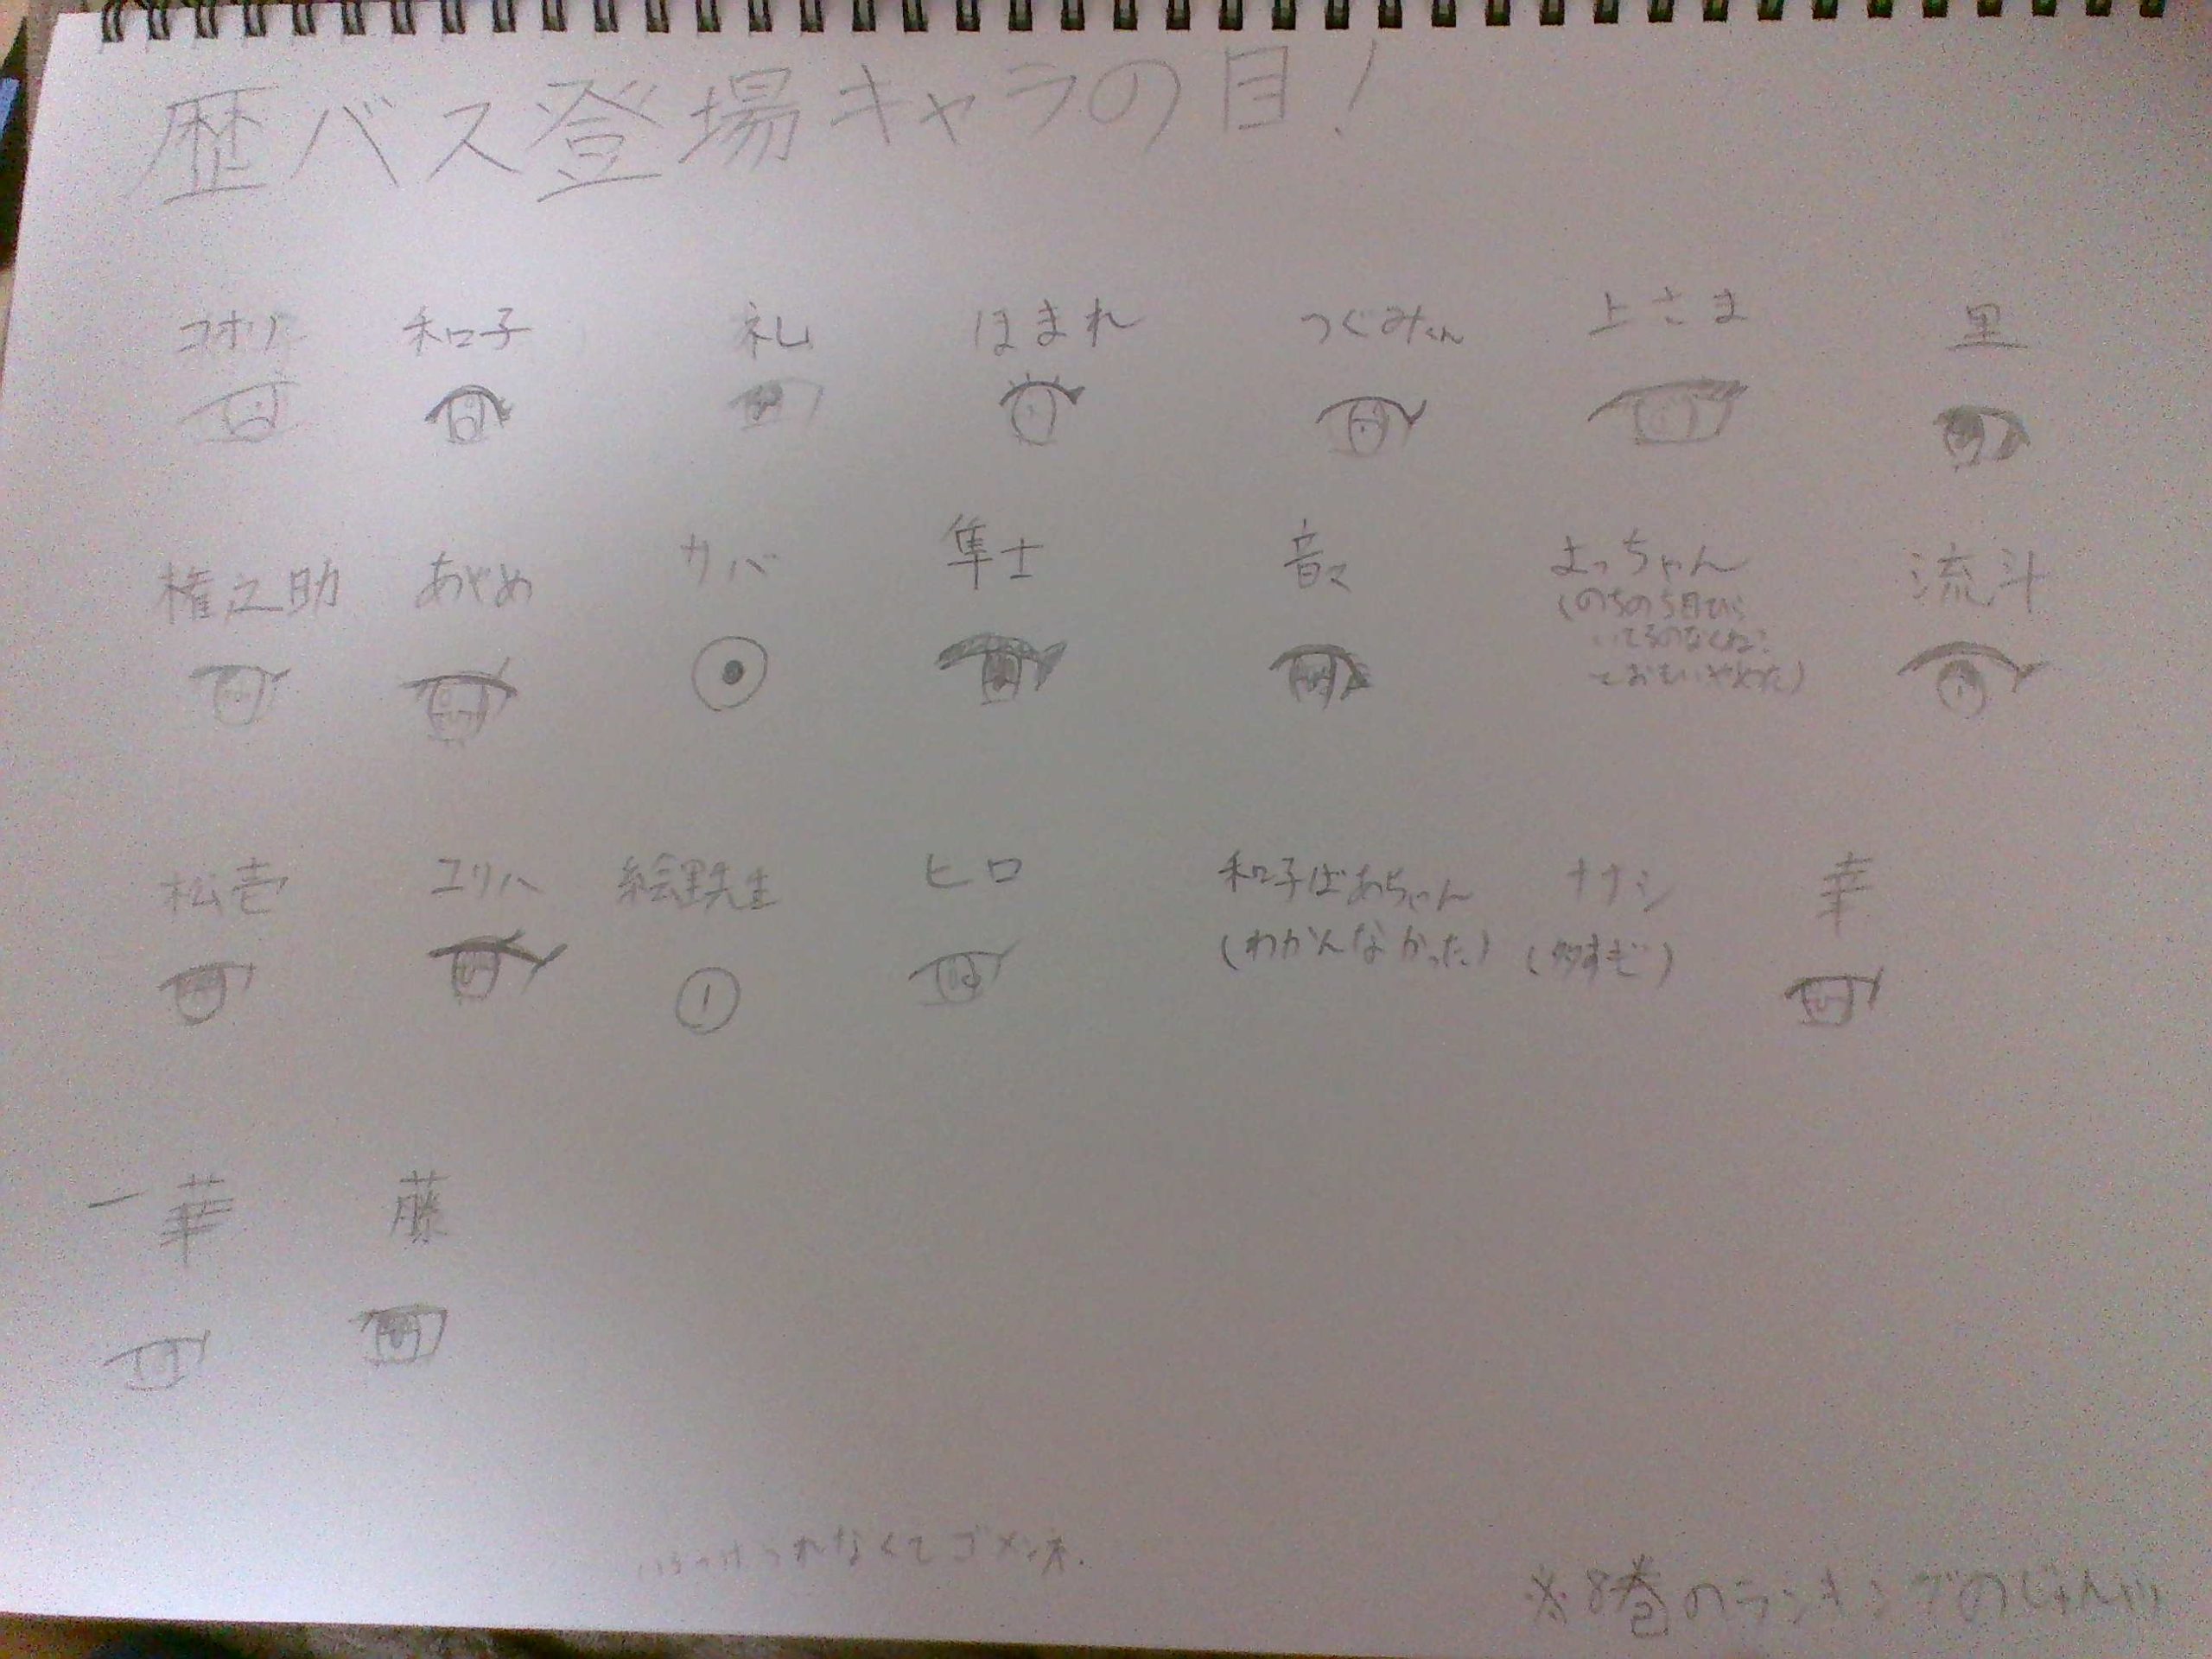 歴バス登場キャラの目!
コオリ 和子 礼 ほまれ つぐみくん 上さま 里
権之助 あやめ サバ 隼士 音々 よっちゃん 流斗
(のちのち目ひら
いてるのなくね?
とおもいやめた)
松壱 ユリハ 絵野先生 ヒロ 和子ばあちゃん ナナシ 幸
(わかんなかった) (多すぎ)
一華 藤
いろつけられなくてゴメンネ.
※8巻のランキングのじゅん